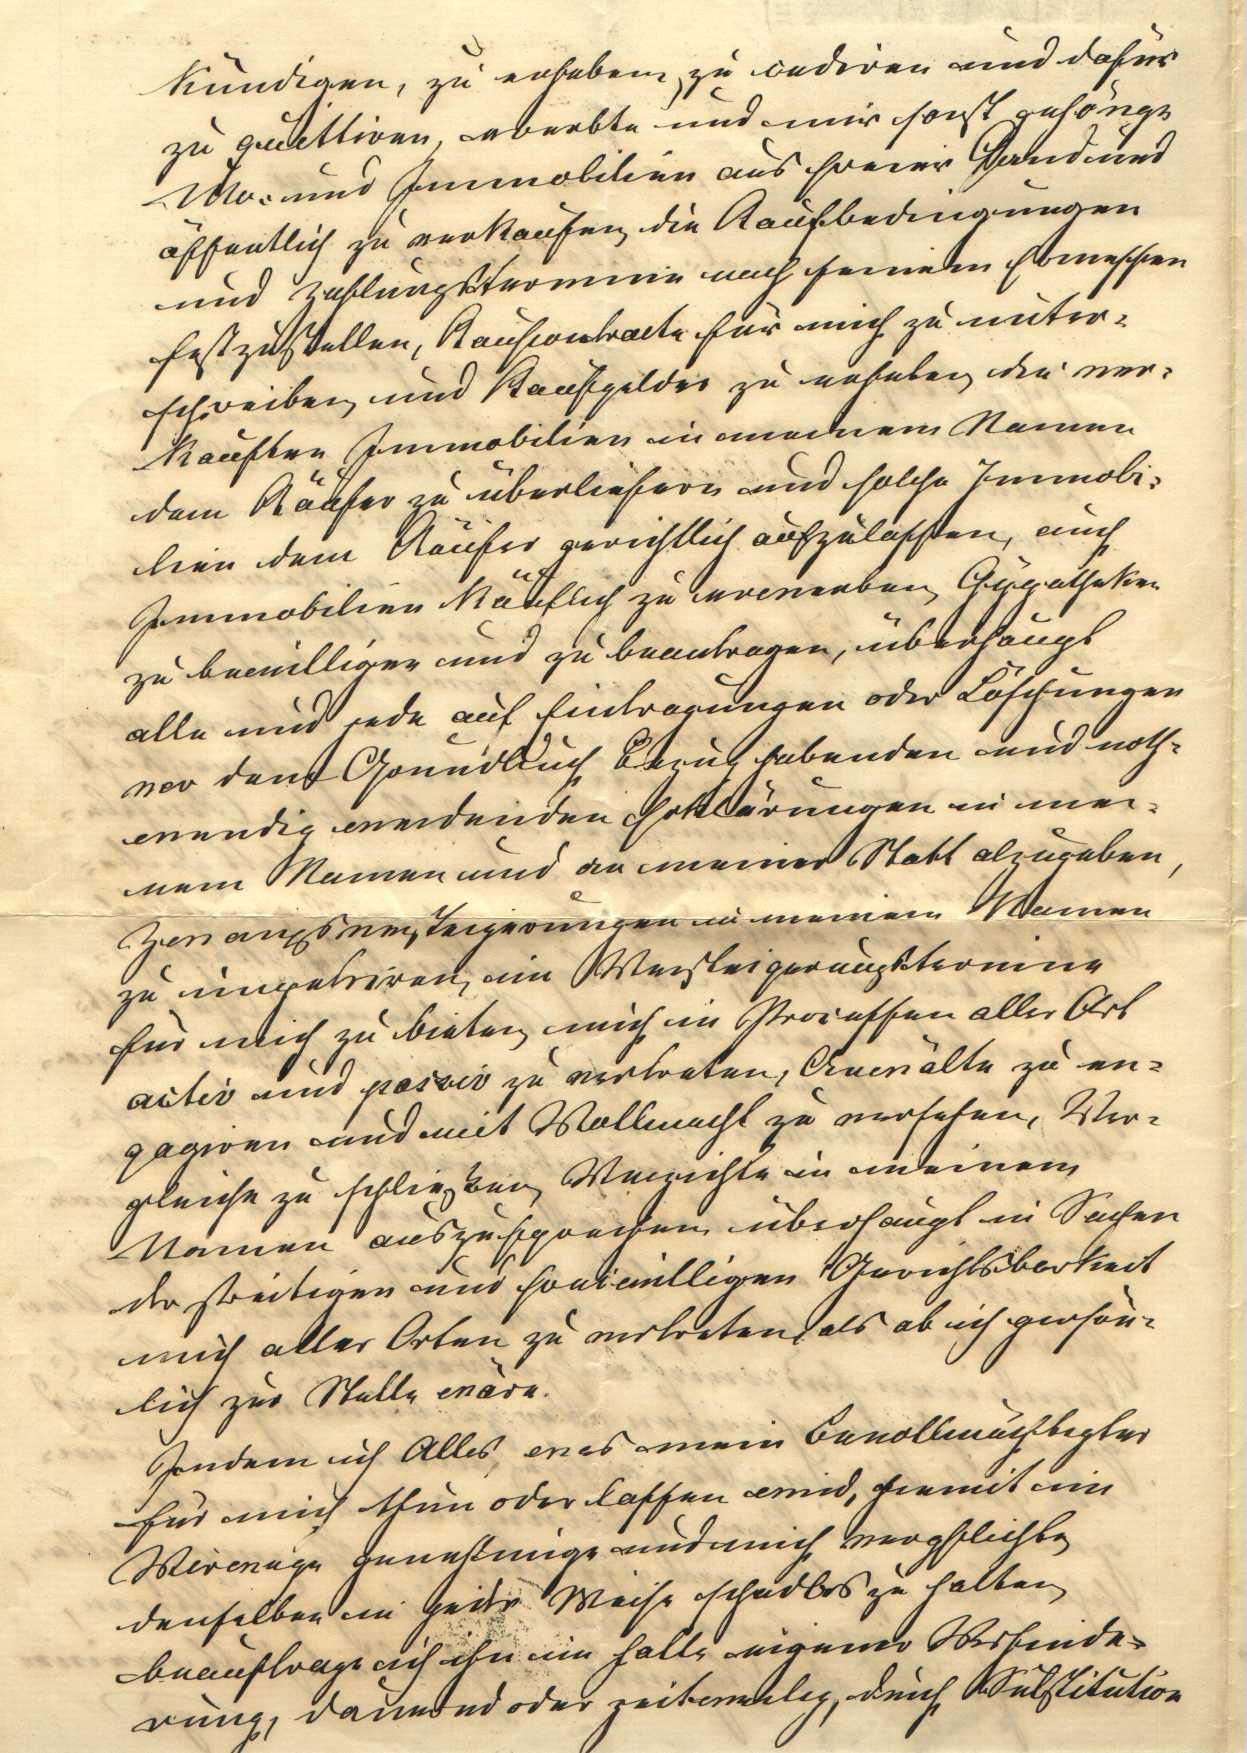 kündigen, zu erheben, zu cediren und dafür
zu quittiren, ererbte und mir sonst gehörige
Mo- und Immobilien aus freier Hand und
öffentlich zu verkaufen, die Kaufbedingungen
und Zahlungstermine nach seinem Ermessen
festzustellen, Kaufcontracte für mich zu unter-
schreiben und Kaufgelder zu erheben, die ver-
kauften Immobilien in meinem Namen
dem Käufer zu überliefern und solche Immobi-
lien dem Käufer gerichtlich aufzulassen, auch
Immobilien käuflich zu erwerben, Hypotheken
zu bewilligen und zu beantragen, überhaupt
alle und jede auf Eintragungen oder Löschungen
vor dem Grundbuch Bezug habenden und noth-
wendig werdenden Erklärungen in mei-
nem Namen und an meiner Statt abzugeben,
Zwangsversteigerungen in meinem Namen
zu impetriren, im Versteigerungstermine
für mich zu bieten, mich in Processen aller Art
activ und passiv zu vertreten, Anwälte zu en-
gagiren und mit Vollmacht zu versehen, Ver-
gleiche zu schließen, Verzichte in meinem
Namen auszusprechen, überhaupt in Sachen
der streitigen und freiwilligen Gerichtsbarkeit
mich aller Orten zu vertreten, als ob ich persön-
lich zur Stelle wäre.
Indem ich Alles, was mein Bevollmächtigter
für mich thun oder lassen wird, hiemit im
Voraus genehmige und mich verpflichte,
denselben in jeder Weise schadlos zu halten,
beauftrage ich ihn im Falle eigener Verhinde-
rung, dauernd oder zeitweilig, durch Substitution